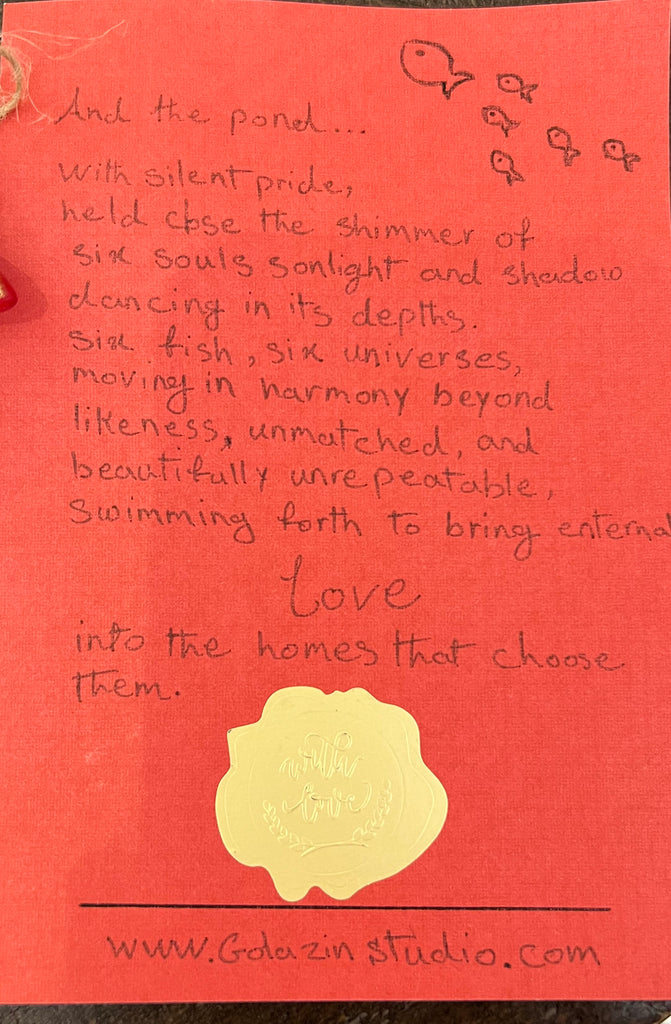 And the pond...
with silent pride,
held close the shimmer of
six souls sonlight and shadow
dancing in its depths.
six fish, six universes,
moving in harmony beyond
likeness, unmatched, and
beautifully unrepeatable,
swimming forth to bring enternal
Love
into the homes that choose
them.
with
love
www.Golazinstudio.com